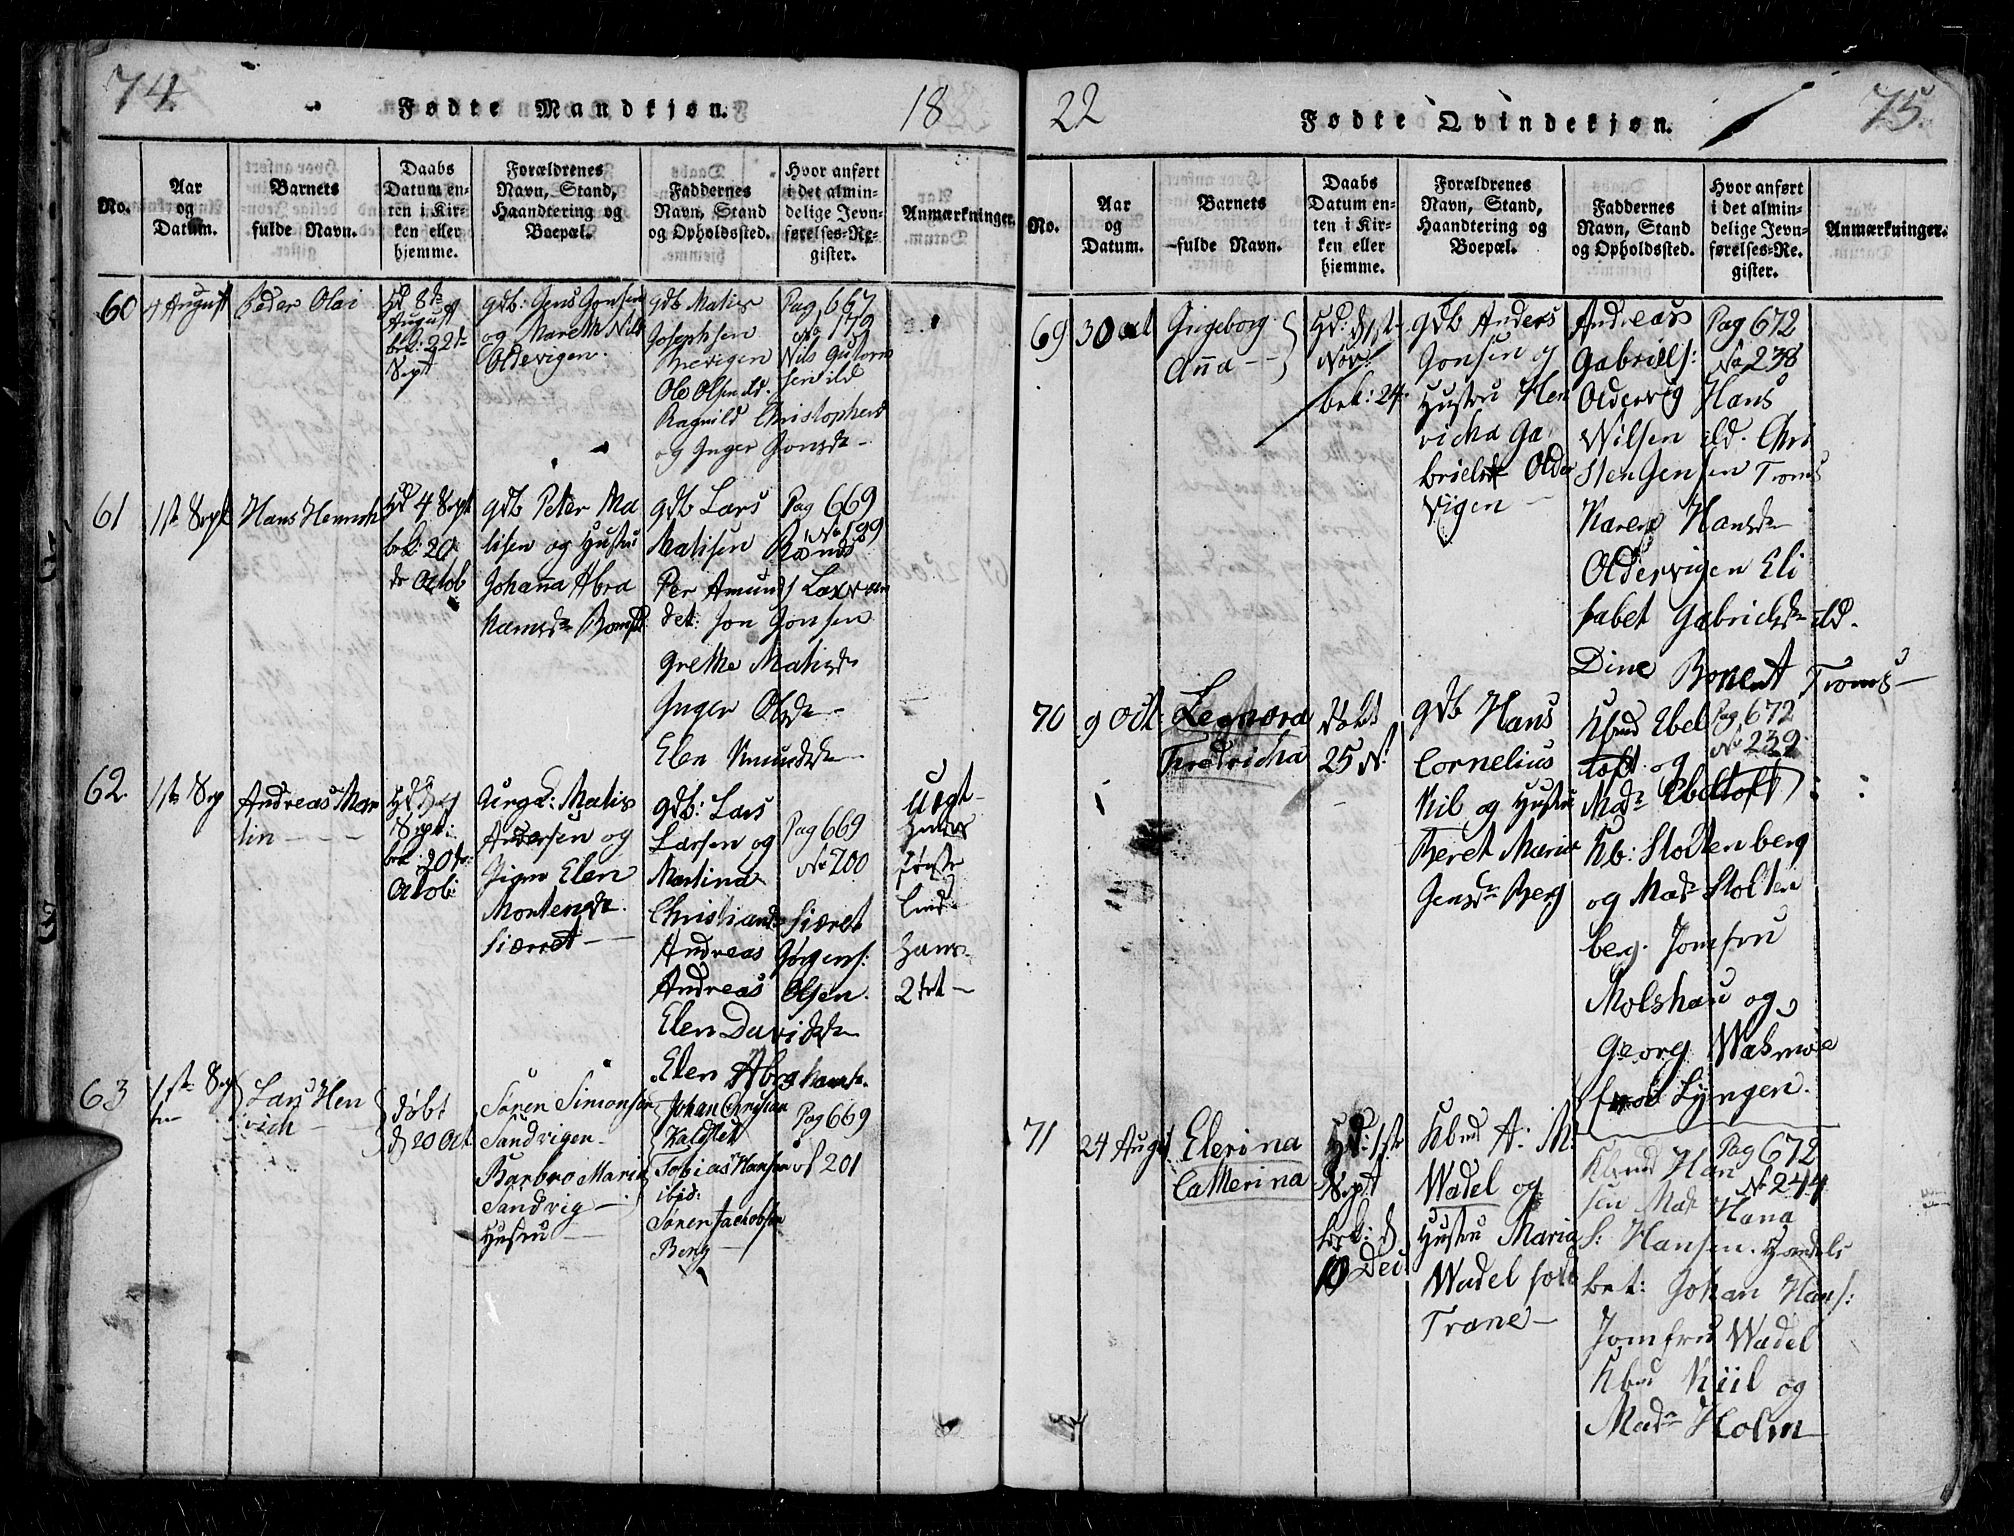 74.
Fødte Mandkjøn.
18
No.
Aar og Datum.
Barnets fulde Navn.
Daabs Datum enten i Kirken eller hjemme.
Forældrenes Navn, Stand, Haandtering og Boepæl.
Faddernes Navn, Stand og Opholdssted.
Hvor anført i det almindelige Jevnførelses-Register.
Anmærkninger.
60
4 August
Peder Olai
Hd 8de
August
bek: 22de
Sept
gdb: Jens Jonsen
og Marethe Nils
Oldevigen.
gdb Matis
Josephsen
Ole Olsen ild.
Ragnild Christophersd
og Inger Jonsdr
Pag 667
No 179
61
1ste Sept
Hans Henrich
Hd 4 Sept
bek: 20
de Octob
gdb Peter Ma
tisen og Hustru
Johanna Abra
hamsdr
gdb Lars
Matisen
Per Amunds
Jon Jonsen
Grethe Matisdr
Inger Olsdr
Elen Amundsdr
Pag 669
No 199
62.
1ste Sep
Andreas Mor
tin
Sept:
bek: 20de
Octob:
Ungk: Matis
Andersen og
Pigen Elen
Mortensdr.
gdb: Lars
Larsen og
Martina
Christiansdr
Andreas Jørgens:
Andreas Olsen.
Elen Davidsdr
Elen Abrahamsdr.
Pag 669
No 200
2det
63
1ste Sep
Lars Hen
rich
døbt
d 20 Oct
Søren Simonsen
Sandvigen
Barbro Maria
Sandvig
Hustru
Johan Christian
Kaldslet
Tobias Hansen
ibid:
Søren Jackobsen
Berg
Pag 669
No 201
22
Fødte Qvindekjøn.
75.
No.
Aar og Datum.
Barnets fulde Navn.
Daabs Datum enten i Kirken eller hjemme.
Forældrenes Navn, Stand, Haandtering og Boepæl.
Faddernes Navn, Stand og Opholdssted.
Hvor anført i det almindelige Jevnførelses-Register.
Anmærkninger.
69
30 Oct
Ingeborg
Anna
Hd:
Nov:
bek: 24.
gdb Anders
Jonsen og
Hustru Hen
richa Ga
brielsdr Older
vigen
Andreas
Gabriels:
Oldervig Hans
Nilsen ild. Chri
sten Jensen Troms
Karen Hansdr
Oldervigen Eli
sabet Gabrielsdr ild.
Dine Troms
Pag 672
No 238
70
9 Oct:
Legnora
Fredricha
døbt
25 N:
gdb Hans
Cornelius
Kil og Hustru
Beret Maria
Jensdr Berg
Kbmd Ebel
toft og
Madr Ebeltoft
Kb: Stoltenberg
og Madr Stolten
berg. Jomfru
Molshau og
Georg
Lyngen.
Pag 672
No 239
71
24 August
Elerina
Catherina
Hd: 1ste
Sept
bek: d
10 Dec:
Kbmd A: M:
Wadel og
Hustru Maria
Wadel født
Trane
Kbmd Han
sen Mad Hana
S: Hansen. Handels
bet: Johan Hans:
Jomfru Wadel
Kbm Kiil og
Madr Holm
Pag 672
No 244